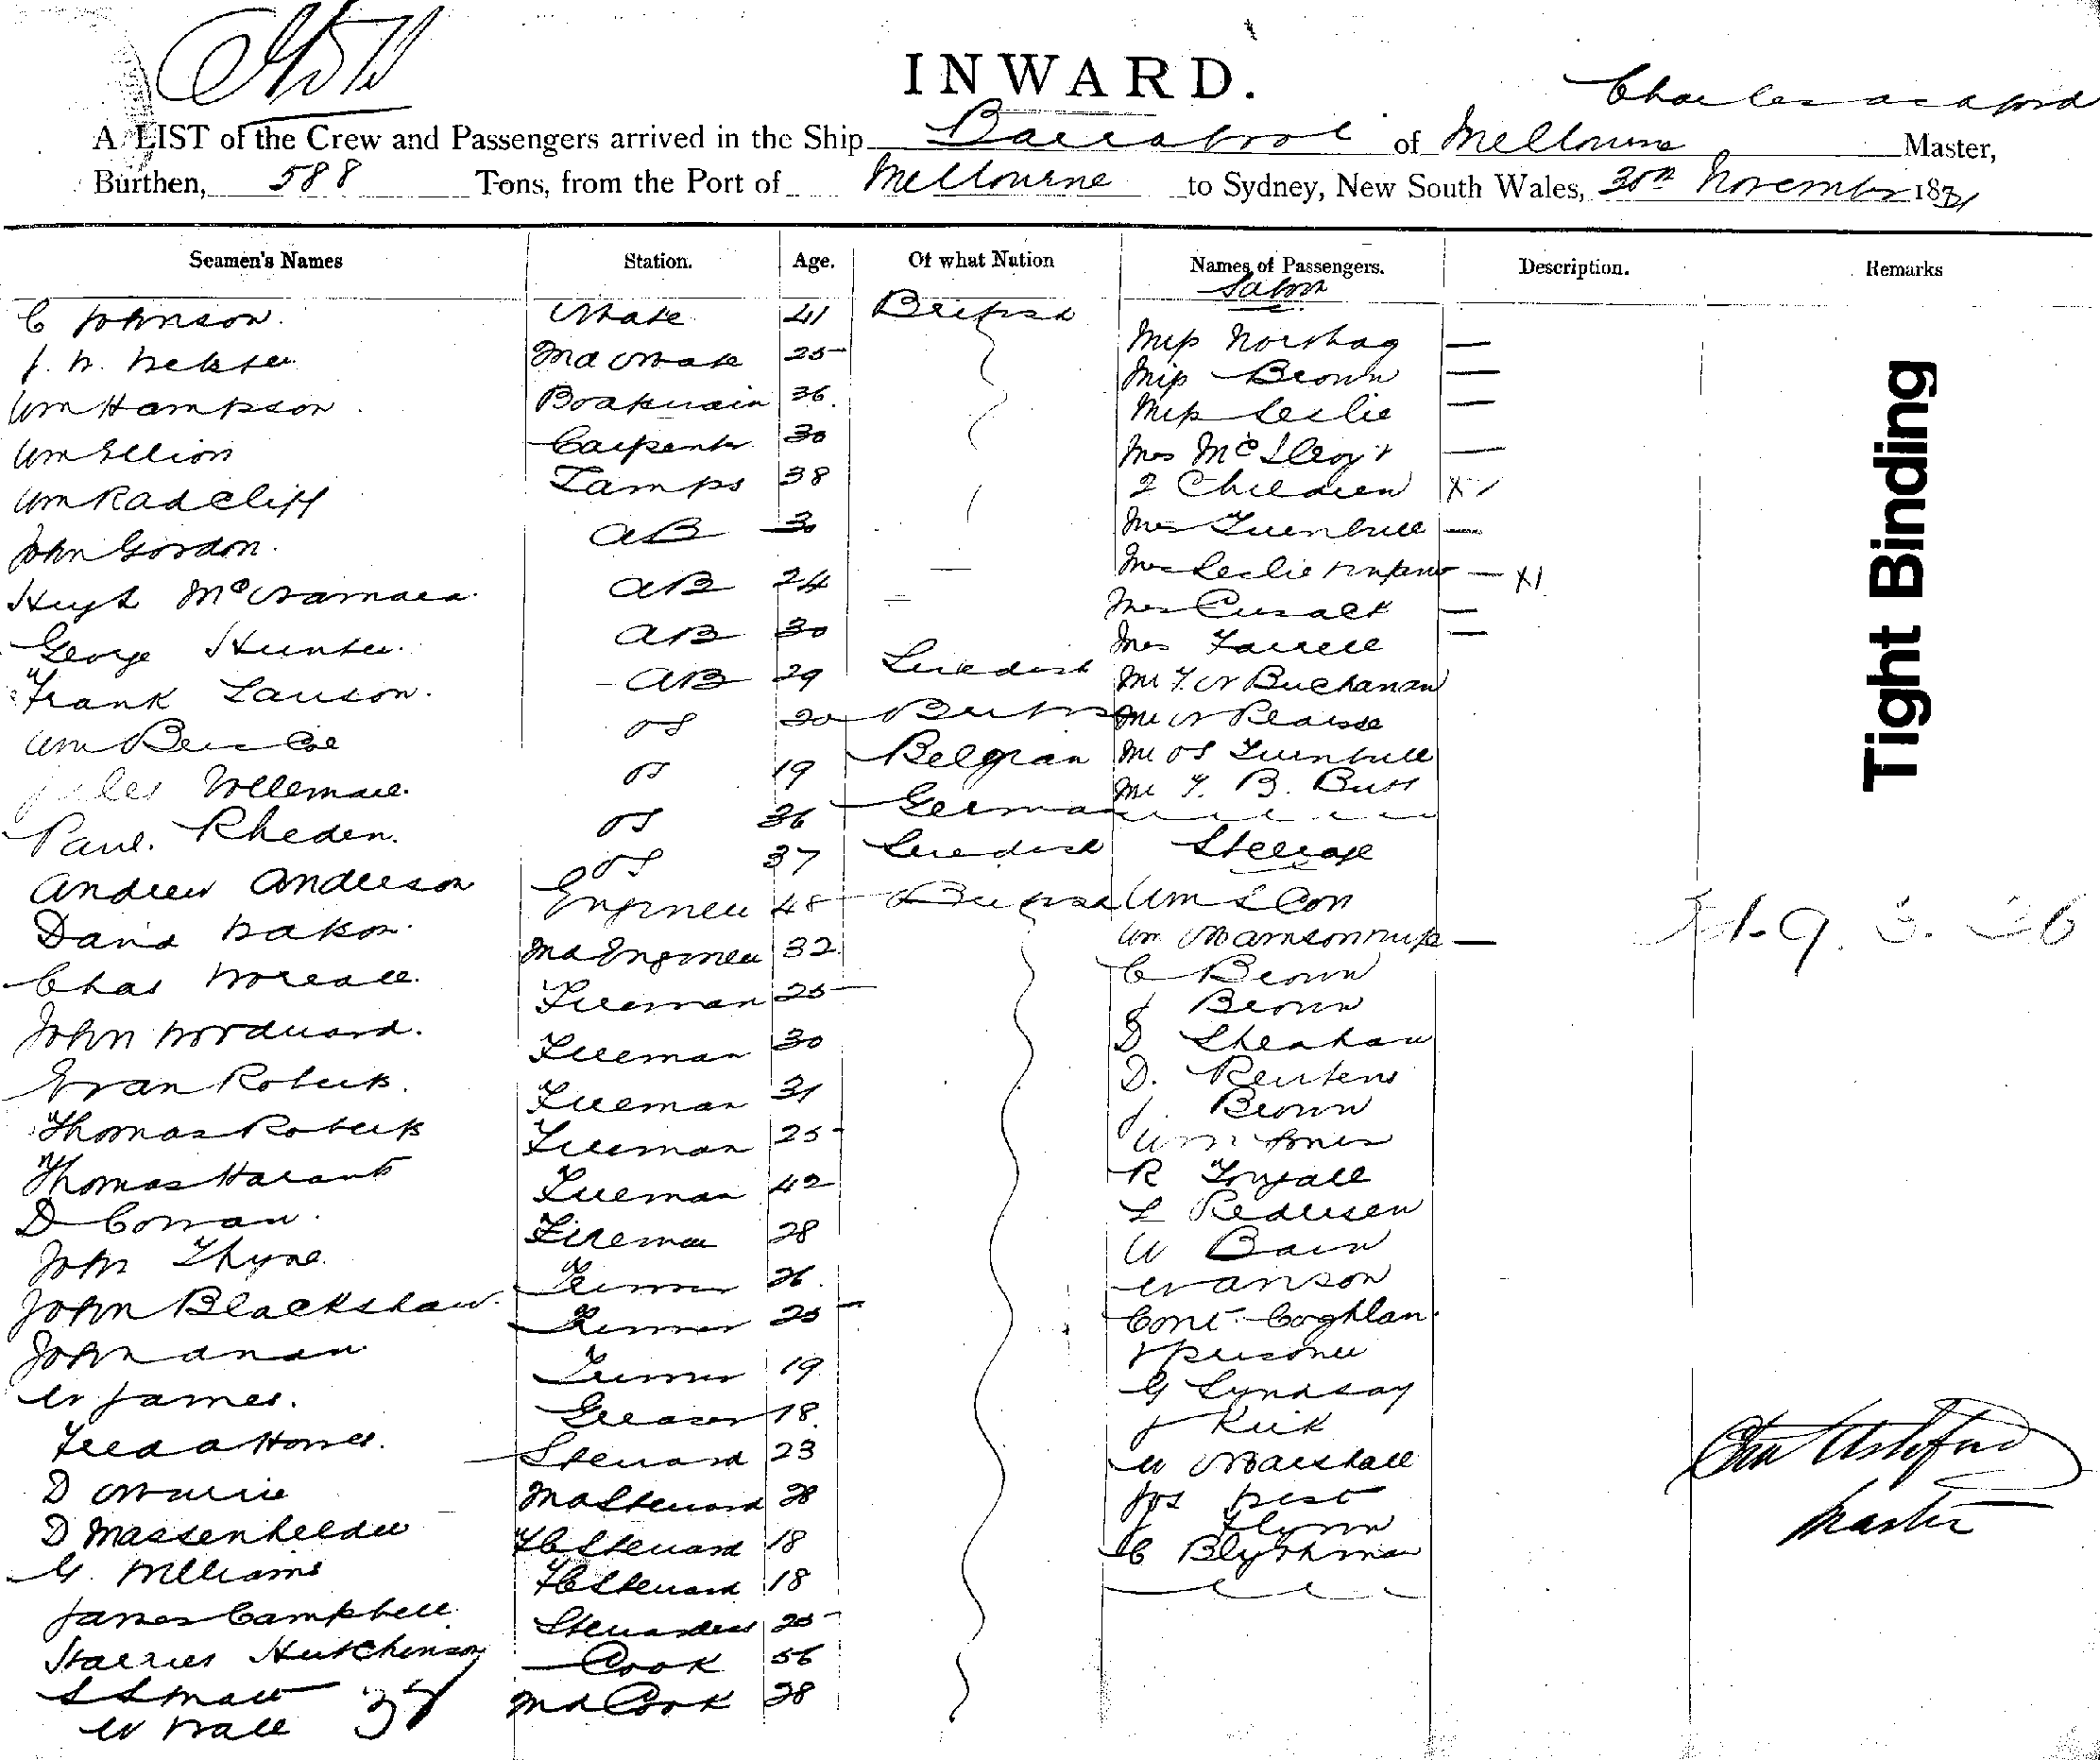 INWARD.
Charles Ashford
A LIST of the Crew and Passengers arrived in the Ship Barrabool of Melbourne Master,
Burthen, 588 Tons, from the Port of Melbourne to Sydney, New South Wales, 30th November 18
Seamen's Names Station. Age. Of what Nation Names of Passengers. Description. Remarks
Saloon
C Johnson. Mate 41 British
Miss Norshag —
J. W. Webster 2nd Mate 25
Miss Brown —
Wm Hampson Boatswain 36.
Miss Leslie —
Wm Elliott Carpenter 30
Mrs McIlroy & —
Wm Radcliff Lamps 38
2 Children X
John Gordon. AB 30
Mrs Turnbull —
Hugh McNamara. AB 24
Mrs Leslie & infant — X1
Mrs Cusack —
George Hunter. AB 30
Mrs Farrell —
Frank Lawson. AB 29 Swedish
Mr F. W Buchanan
Wm Briscoe OS 20 British
Mr W Pearse
Jules Willemare. OS 19 Belgian
Mr OS Turnbull
Mr F. B. Butt
Paul. Rheden. OS 36 German
Andrew Anderson OS 37 Swedish
Steerage
David Watson. Engineer 48 British
Wm S Con
Chas Worrall. 2nd Engineer 32
Wm & wife —
C Brown
John Woodward. Fireman 25
J Brown
Evan Roberts. Fireman 30
D Sheahan
Thomas Roberts Fireman 31
D. Reubens
J. Brown
Thomas Fireman 25
Wm Jones
D Cowan. Fireman 42
R
L Pedersen
John Thyne. Fireman 28
W Bain
John Blackshaw. Trimmer 26.
W Anson
John Trimmer 25
Const. Coghlan
& prisoner
W James. Trimmer 19
G Lyndsay
Fred A Howes. Greaser 18.
J Kirk
D Steward 23
W Marshall
D Massenhelder 2nd Steward 28
Jos West
J Flynn
G. Williams FC Steward 18
C Blythman
James Campbell FC Steward 18
Hutchinson Stewardess 25
S Small Cook 56
W Wall 37 2nd Cook 28
Tight Binding
Chas Ashford
Master